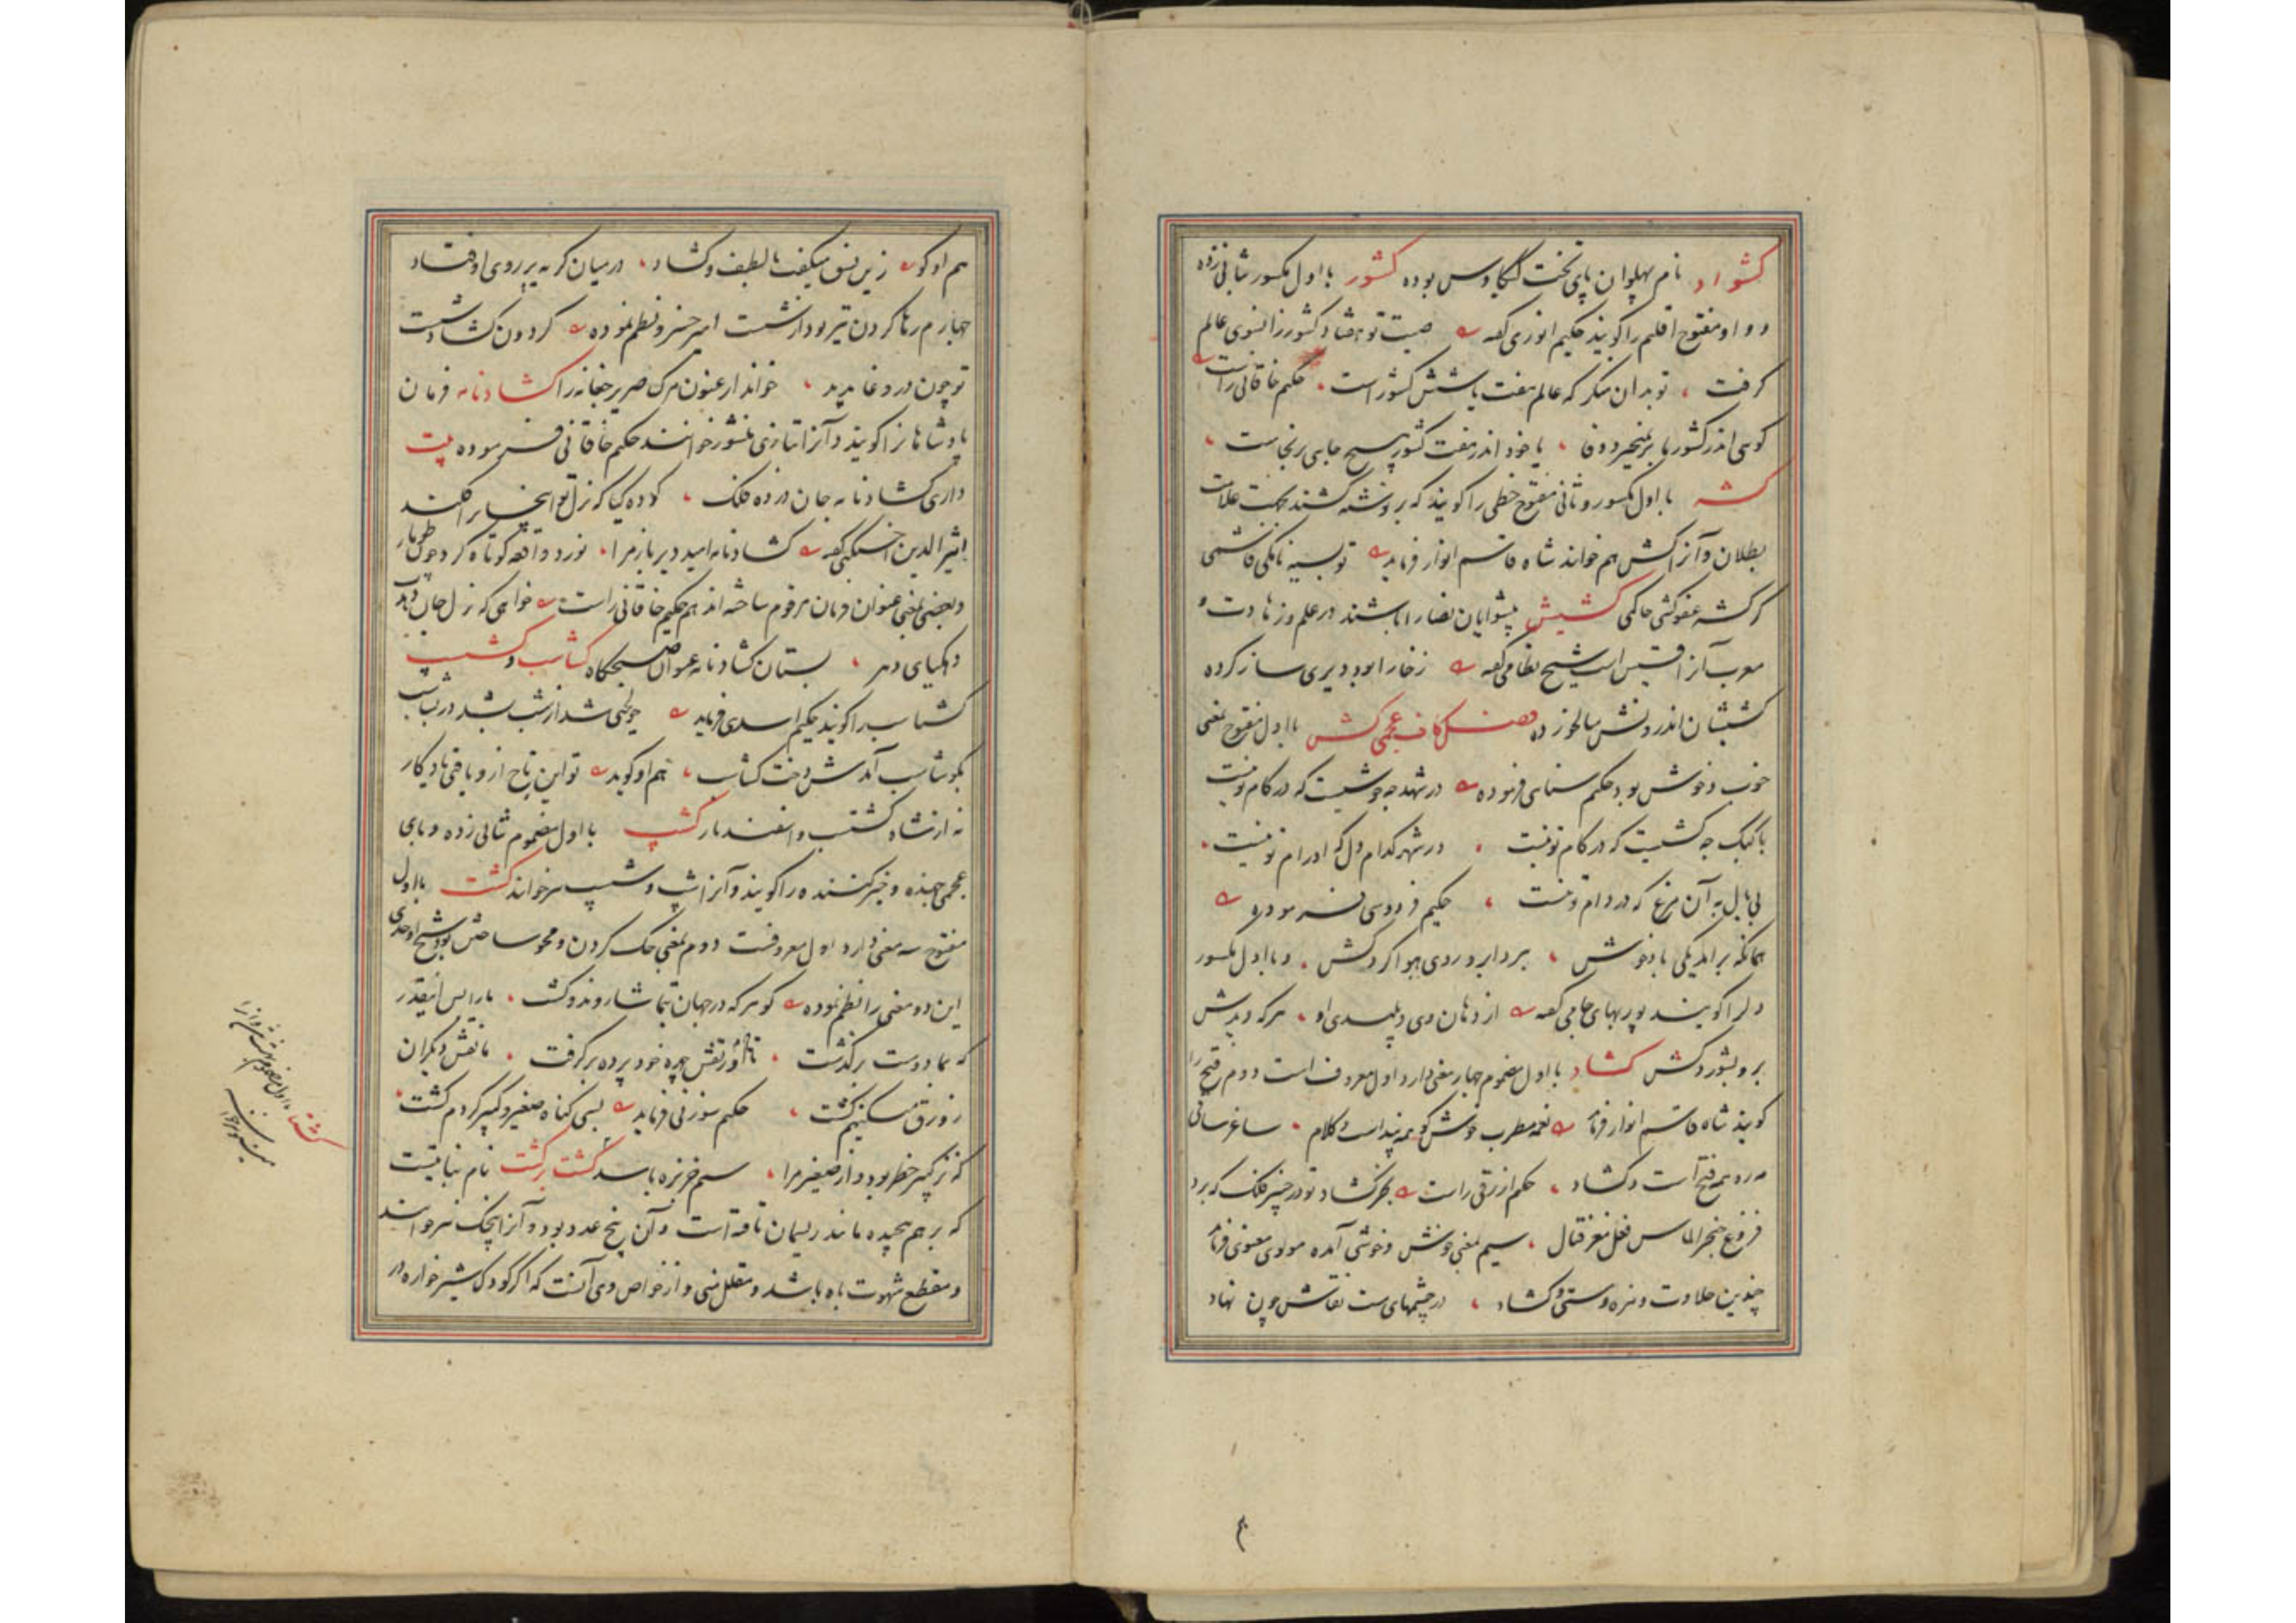 کشواد نام پهلوان پای تخت کیکاوس بوده کشور با اول مکسور بثانی زده
و واو مفتوح اقلیم را گویند حکیم انوری گفته صیت تو هفتاد کشور زانسوی عالم
گرفت تو بدان منگر که عالم هفت یا شش کشور است حکیم خاقانی راست
کوسی اندر کشور ما بر نمیخیزد وفا یا خود اندر هفت کشور هیچ جایی برنخاست
کشه با اول مکسور و ثانی مفتوح خطی را گویند که بر نوشته کشند بجهت علامت
بطلان و آنرا کش هم خوانند شاه قاسم انوار فرماید
گر کشه عفو کشی حاکمی کشیش پیشوایان نصارا باشند در علم و زهادت و
معرب آنرا قسیس است شیخ نظامی گفته زخارا بود دیری ساز کرده
کشیشان اندر و نش سالخورده فصل کاف عجمی کش با اول مفتوح بمعنی
خوب و خوش بود حکیم سنایی فرموده در شهد چه خوشیست که در کام تو نیست
با کبک چه کشیست که در کام تو نیست در شهر کدام دل که او رام تو نیست
بی بال به آن مرغ که در دام تو نیست حکیم فردوسی فرموده
همانگه برآمد یکی باد خوش ببرد ابر و روی هوا کرد کش و با اول مکسور
دل را گویند پور بهای جامی گفته از دهان وی و پلیدی او هر که دیدش
برو بشورد کش کشاد با اول مضموم چهار معنی دارد اول معروف است دوم فتح را
گویند شاه قاسم انوار فرماید نغمه مطرب خوش گو همه پند است و کلام ساغر ساقی
مه رو همه فتح است و کشاد حکیم ازرقی راست بجز کشاد تو در چنبر فلک که برد
فروغ خنجر الماس فعل مغز قتال سیم بمعنی خوش و خوشی آمده مولوی معنوی فرماید
چندین حلاوت و مزه و مستی و کشاد در چشمهای مست تو نقاش چون نهاد
هم او گوید زین نسق میگفت با لطف و کشاد در میان گریه بر روی اوفتاد
چهارم رها کردن تیر بود از شست امیر خسرو نظم نموده گردون کشاد شست
تو چون در دغا بدید خواند ارغنون مرگ صریر جغانه را کشادنامه فرمان
پادشاهانرا گویند و آنرا بتازی منشور خوانند حکیم خاقانی فرموده بیت
داری کشادنامه جان در ده فلک
اثیرالدین اخسیکتی گفته کشادنامه امید دیر باز مرا نورد واقعه کوتاه کرد چون طومار
و بعضی بمعنی عنوان فرمان مرقوم ساخته اند هم حکیم خاقانی راست خواهی که نزل جان دهد
ده کیای دهر بستان کشادنامه عنوان صبحگاه کشاسب و کشسب
کشتاسب را گویند حکیم اسدی فرماید چو لختی شد از شب بشد در شتاب
بگوشاسب آمدش دخت کشاسب هم او گوید تو این تاج ازو یافتی یادگار
نه از شاه کشتسب و اسفندیار کشپ با اول مضموم بثانی زده و بای
عجمی جهنده و خیز کننده را گویند و آنرا شپ و شیپ نیز خوانند کشت با اول
مفتوح سه معنی دارد اول معروفست دوم بمعنی حک کردن و محو ساختن بود شیخ اوحدی
این دو معنی را نظم نموده گو هر که در جهان بتماشا روند و کشت ما را بس اینقدر
که بما دوست برگذشت تا او ز نقش چهره خود پرده برگرفت ما نقش دیگران
ز ورق میکنیم کشت حکیم سوزنی فرماید بسی گناه صغیر و کبیر کردم کشت
که نز کبیر خطر بود و نز صغیر مرا سیم خربزه باشد کشت برکشت نام نباتیست
که بر هم پیچیده مانند ریسمان تافته است و آن پنج عدد بود و آنرا پیچک نیز خوانند
و مقطع شهوت باه باشد و مقلل منی و از خواص وی آنست که اگر کودک شیرخواره در